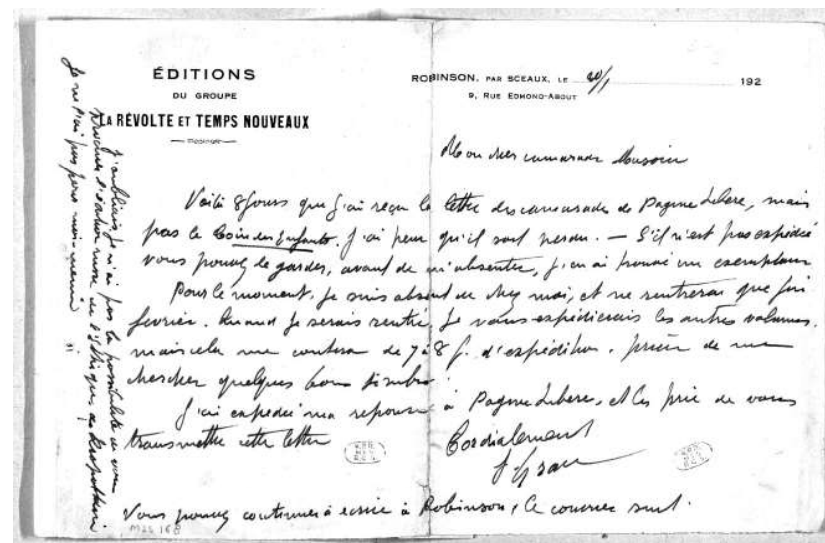 ÉDITIONS
DU GROUPE
LA RÉVOLTE ET TEMPS NOUVEAUX
ROBINSON, PAR SCEAUX, LE 20/1 192
9, RUE EDMOND-ABOUT
Mon cher camarade
Voilà 8 jours que j'ai reçu la lettre des camarades de Pagine Libere, mais
pas le Coin des Enfants. J'ai peur qu'il soit perdu. — S'il n'est pas expédié
vous pouvez le garder, avant de m'absenter, j'en ai trouvé un exemplaire
Pour le moment, je suis absent de chez moi, et ne rentrerai que fin
février. Quand je serais rentré, je vous expédierais les autres volumes.
mais cela me coutera de 7 à 8 f. d'expédition. prière de me
chercher quelques bons timbres.
J'ai expédié ma reponse à Pagine Libere, et les prie de vous
transmettre cette lettre
Cordialement
J Grave
Vous pouvez continuer à écrire à Robinson, le courrier suit.
J'oubliais, je n'ai pas la possibilité de vous
procurer l'édition russe de l'Ethique de Kropotkine
Je ne l'ai pas pour moi-même
M25 168